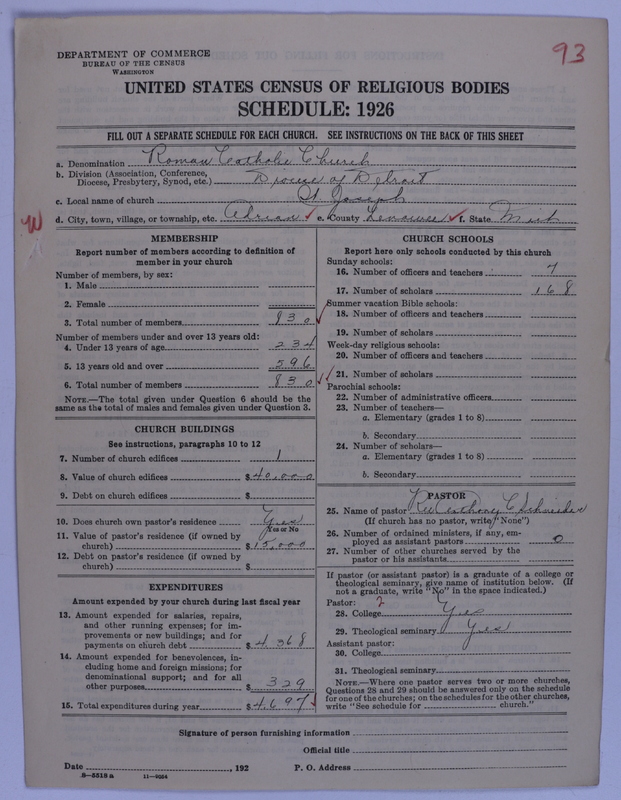 93
DEPARTMENT OF COMMERCE
BUREAU OF THE CENSUS
WASHINGTON
UNITED STATES CENSUS OF RELIGIOUS BODIES
SCHEDULE: 1926
FILL OUT A SEPARATE SCHEDULE FOR EACH CHURCH. SEE INSTRUCTIONS ON THE BACK OF THIS SHEET
a. Denomination Roman Catholic Church
b. Division (Association, Conference,
Diocese, Presbytery, Synod, etc.) Diocese of Detroit
c. Local name of church St Joseph
W d. City, town, village, or township, etc. Adrian e. County Lenawee f. State Mich
MEMBERSHIP
Report number of members according to definition of
member in your church
Number of members, by sex:
1. Male
2. Female
3. Total number of members 830
Number of members under and over 13 years old:
4. Under 13 years of age 234
5. 13 years old and over 596
6. Total number of members 830
NOTE.—The total given under Question 6 should be the
same as the total of males and females given under Question 3.
CHURCH BUILDINGS
See instructions, paragraphs 10 to 12
7. Number of church edifices 1
8. Value of church edifices $40,000
9. Debt on church edifices $
10. Does church own pastor's residence Yes
Yes or No
11. Value of pastor's residence (if owned by
church) $15,000
12. Debt on pastor's residence (if owned by
church) $
EXPENDITURES
Amount expended by your church during last fiscal year
13. Amount expended for salaries, repairs,
and other running expenses; for im-
provements or new buildings; and for
payments on church debt $4368
14. Amount expended for benevolences, in-
cluding home and foreign missions; for
denominational support; and for all
other purposes $329
15. Total expenditures during year $4,697
CHURCH SCHOOLS
Report here only schools conducted by this church
Sunday schools:
16. Number of officers and teachers 7
17. Number of scholars 168
Summer vacation Bible schools:
18. Number of officers and teachers
19. Number of scholars
Week-day religious schools:
20. Number of officers and teachers
21. Number of scholars
Parochial schools:
22. Number of administrative officers
23. Number of teachers—
a. Elementary (grades 1 to 8)
b. Secondary
24. Number of scholars—
a. Elementary (grades 1 to 8)
b. Secondary
PASTOR
25. Name of pastor Rev Anthony C Schneider
(If church has no pastor, write "None")
26. Number of ordained ministers, if any, em-
ployed as assistant pastors 0
27. Number of other churches served by the
pastor or his assistants
If pastor (or assistant pastor) is a graduate of a college or
theological seminary, give name of institution below. (If
not a graduate, write "No" in the space indicated.)
Pastor: 2
28. College Yes
29. Theological seminary Yes
Assistant pastor:
30. College
31. Theological seminary
NOTE.—Where one pastor serves two or more churches,
Questions 28 and 29 should be answered only on the schedule
for one of the churches; on the schedules for the other churches,
write "See schedule for church."
Signature of person furnishing information
Official title
Date , 192 P. O. Address
8-5518a 11-9024